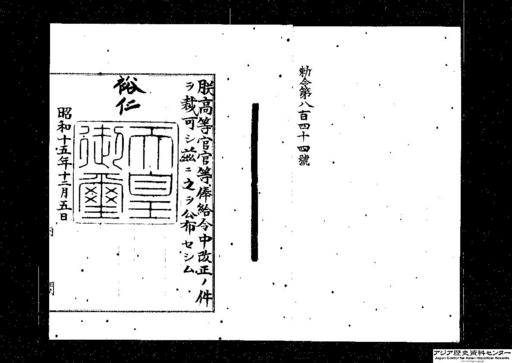 勅令第八百四十四號
朕高等官官等俸給令中改正ノ件
ヲ裁可シ茲ニ之ヲ公布セシム
裕仁
天皇
御璽
昭和十五年十二月五日
アジア歴史資料センター
Japan Center for Asian Historical Records